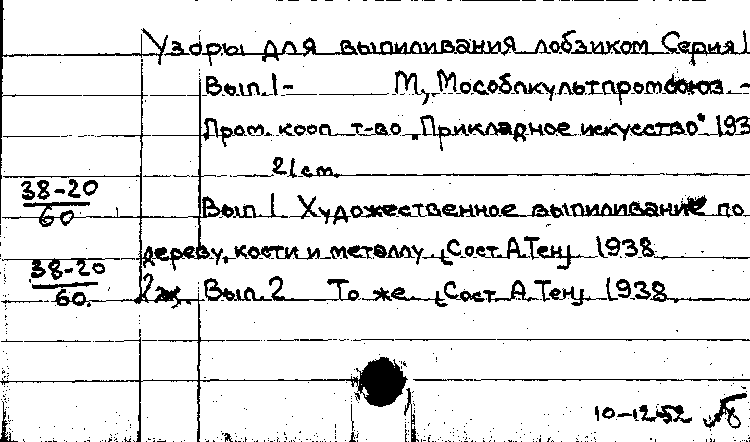 Узоры для выпиливания лобзиком Серия 1
Вып. 1- М, Мособлкультпромсоюз. -
Пром. кооп т-во „Прикладное искусство" 193
21 см.
38-20
60
Вып. 1 Художественное выпиливание по
дереву, кости и металлу. [Сост. А. Тен] 1938.
38-20
60.
2 эж. Вып. 2 То же. [Сост. А. Тен] 1938.
10-1252